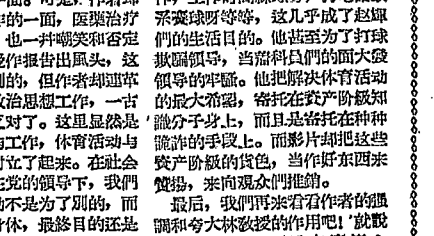 的一面，医藥治疗
也一幷嘲笑和否定
作报告出風头，这
的，但作者却連革
治思想工作，一古
对了。这里显然是
工作，体育活动与
立了起来。在社会
在党的領导下，我們
不是为了別的，而
身体，最終目的还是
系賽球呀等等，这几乎成了赵輝
們的生活目的。他甚至为了打球
欺騙領导，当着科員們的面大發
領导的牢騷。他把解决体育活动
的最大希望，寄托在資产阶級知
識分子身上，而且是寄托在种种
詭詐的手段上。而影片却把这些
資产阶級的貨色，当作好东西来
贊揚，来向观众們推銷。
最后，我們再来看看作者的强
調和夸大林教授的作用吧！就說